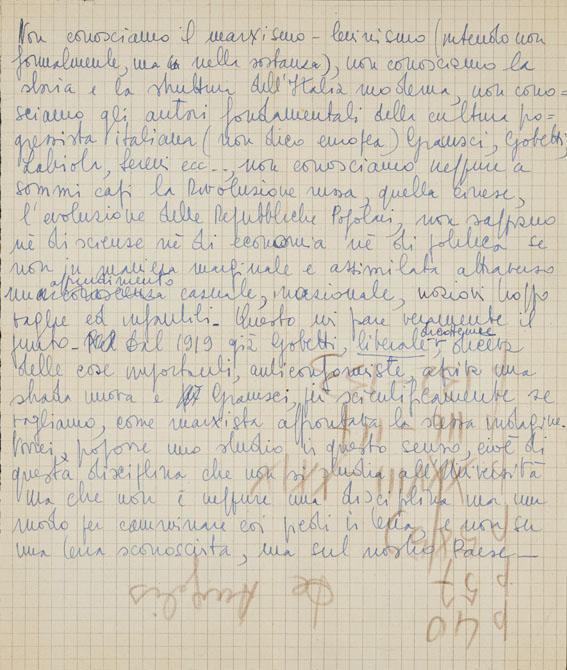 Non conosciamo il marxismo-leninismo (intendo non
formalmente, ma nella sostanza), non conosciamo la
storia e la struttura dell'Italia moderna, non cono=
sciamo gli autori fondamentali della cultura po=
gressista italiana (non dico europea) Gramsci, Gobetti,
Labiola, Sereni ecc..., non conosciamo neppure a
sommi capi la Rivoluzione russa, quella cinese,
l'evoluzione delle Repubbliche Popolari, non sappiamo
nè di scienze nè di economia nè di politica se
non in maniera marginale e assimilata attraverso
apprendimento
casuale, nozionale, nozioni troppo
vaghe ed infantili. Questo mi pare veramente il
punto. Dal 1919 già Gobetti, "liberale", diceva
delle cose importanti, anticonformiste, apriva una
strada nuova e Gramsci, più scientificamente se
vogliamo, come marxista affrontava la stessa indagine.
Vorrei proporre uno studio in questo senso, cioè di
questa disciplina che non si studia all'Università
ma che non è neppure una disciplina ma un
modo per camminare coi piedi in terra, e non su
una terra sconosciuta, ma sul nostro Paese.
De Angelis
p 57
p 40